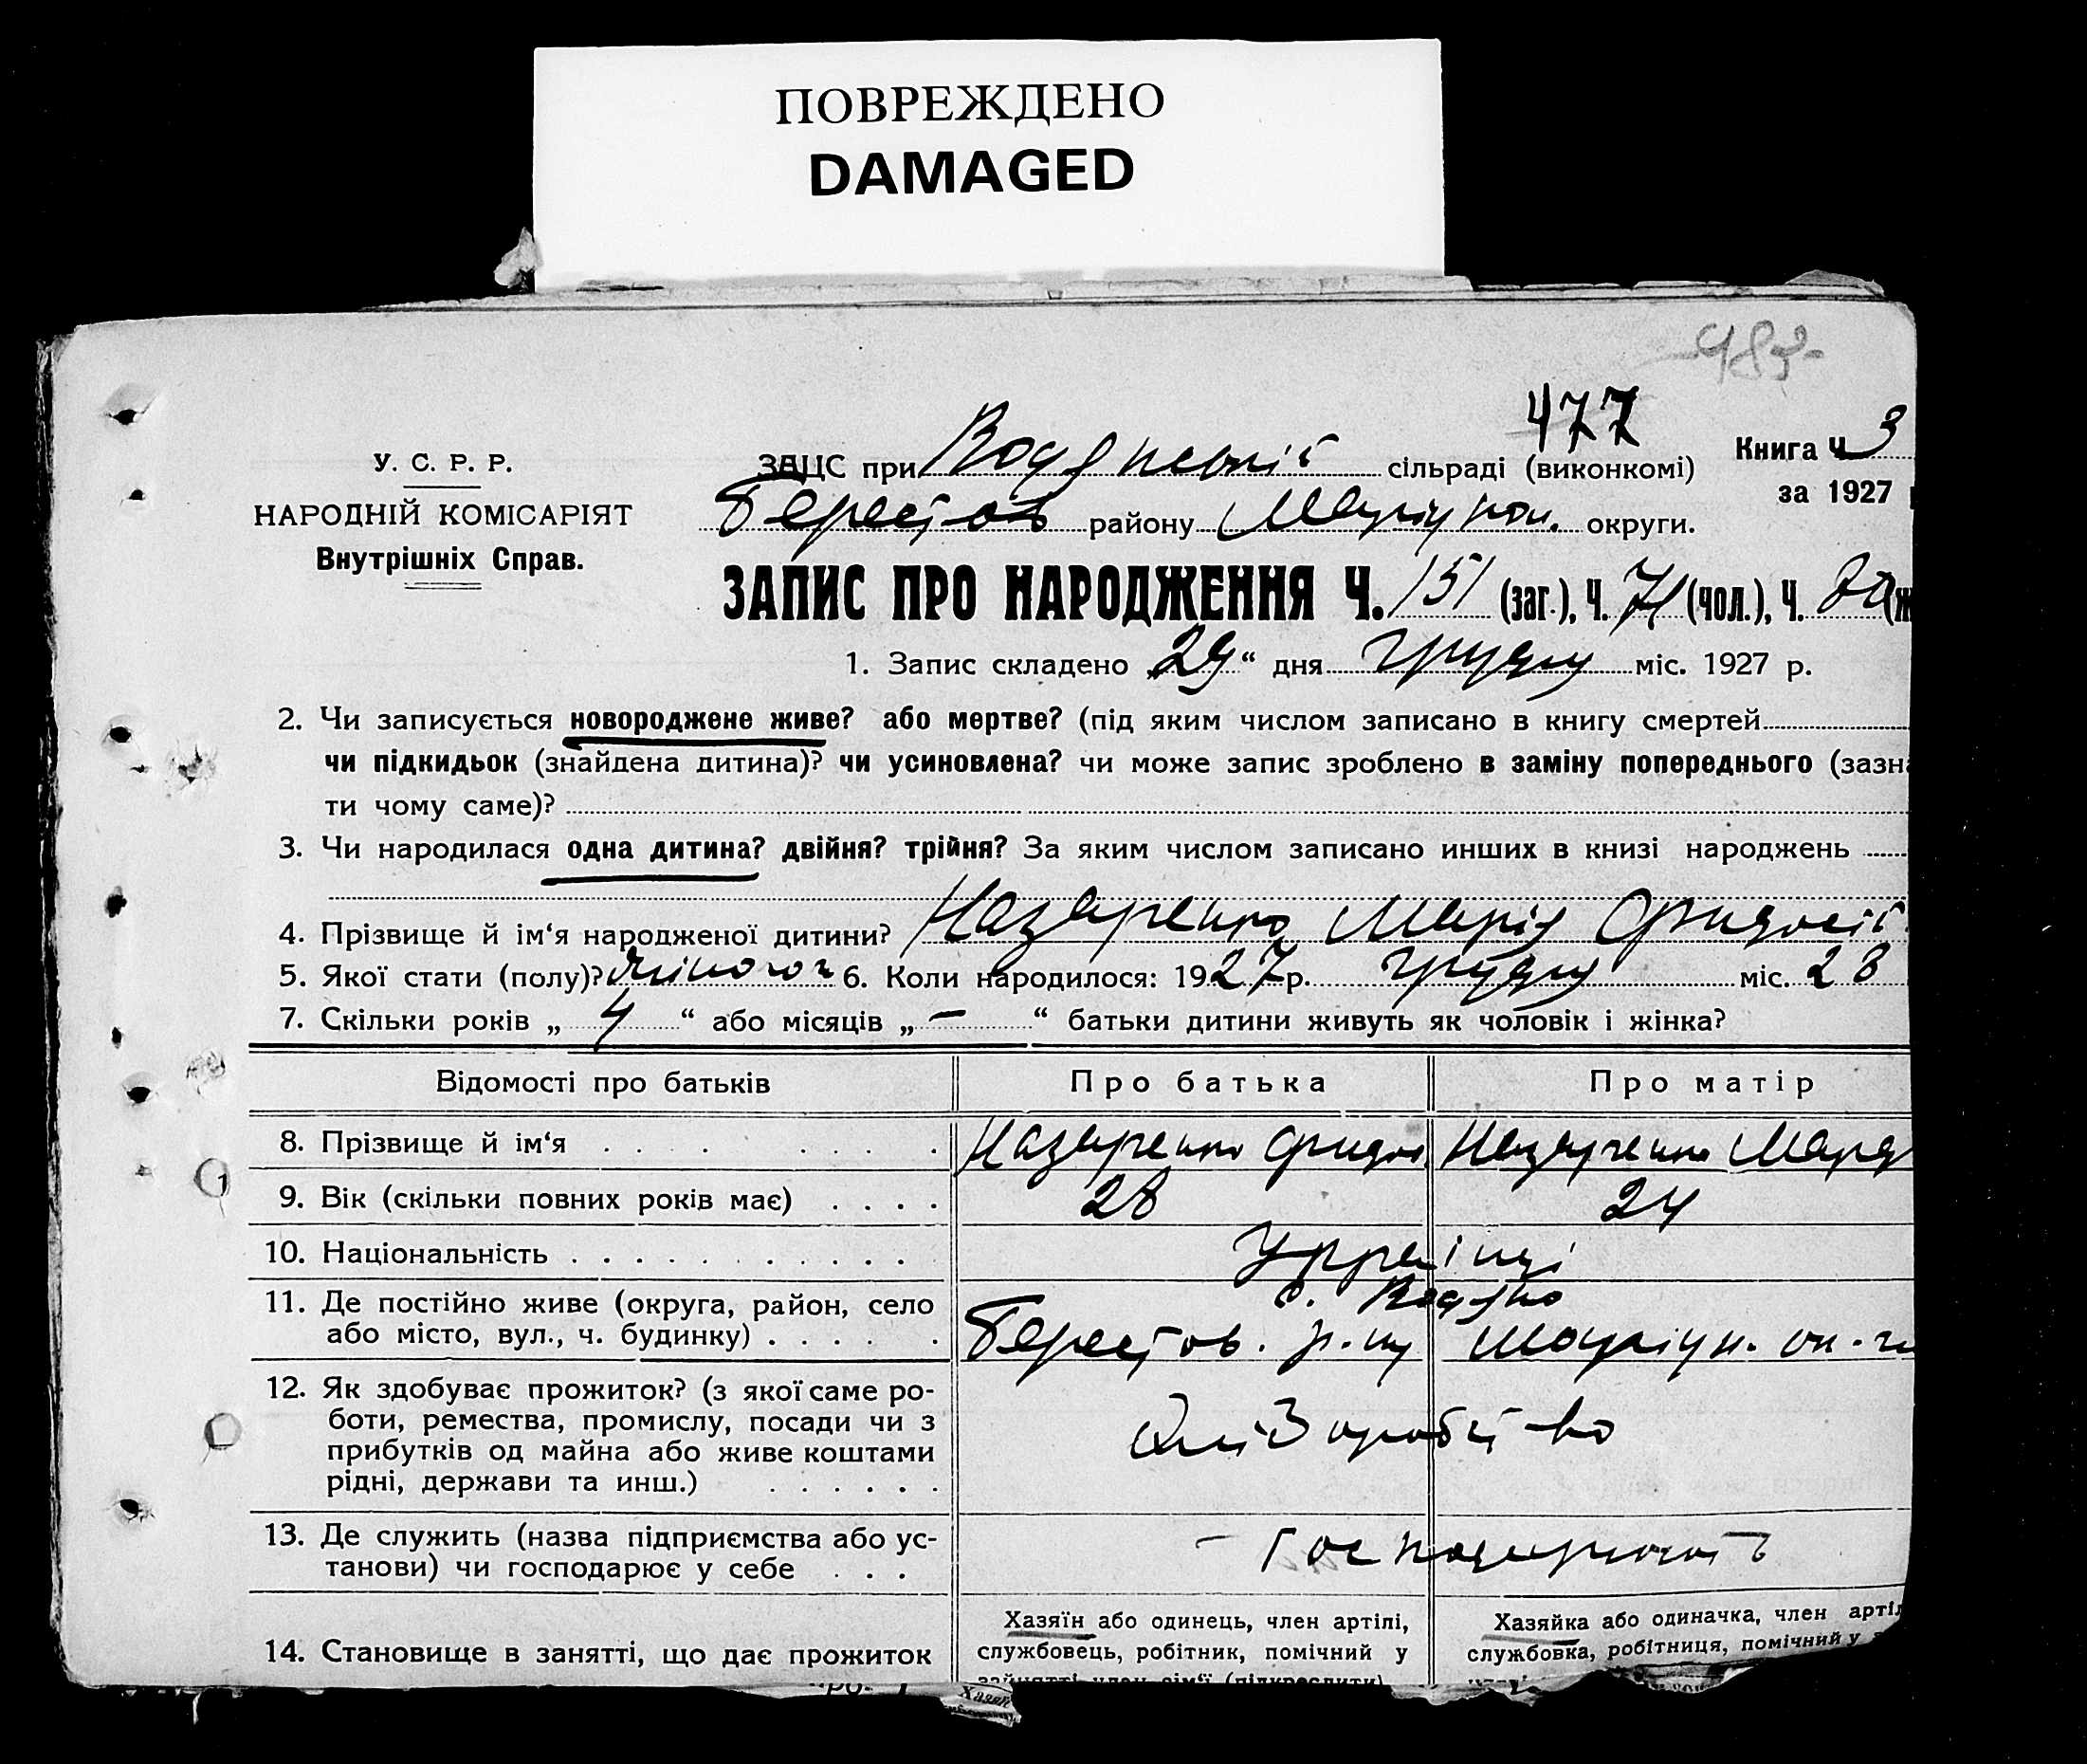 ПОВРЕЖДЕНО
DAMAGED
477
У. С. Р. Р.
НАРОДНІЙ КОМІСАРІЯТ
Внутрішніх Справ.
ЗАЦС при Водянській сільраді (виконкомі) Книга Ч. 3
за 1927
Берестов району Маріупол. округи.
ЗАПИС ПРО НАРОДЖЕННЯ Ч. 151 (заг.), Ч. 71 (чол.), Ч. (ж
1. Запис складено „29“ дня грудня міс. 1927 р.
2. Чи записується новороджене живе? або мертве? (під яким числом записано в книгу смертей
чи підкидьок (знайдена дитина)? чи усиновлена? чи може запис зроблено в заміну попереднього (зазна
ти чому саме)?
3. Чи народилася одна дитина? двійня? трійня? За яким числом записано инших в книзі народжень
4. Прізвище й ім‘я народженої дитини? Назаренко Марія
5. Якої стати (полу)? жіночої 6. Коли народилося: 1927 р. грудня міс. 28
7. Скільки років „ 4 “ або місяців „ — “ батьки дитини живуть як чоловік і жінка?
Відомості про батьків Про батька Про матір
8. Прізвище й ім‘я . . . . . . . Назаренко Назаренко
9. Вік (скільки повних років має) . . . . 28 24
10. Національність . . . . . . . . . . . Українці
11. Де постійно живе (округа, район, село с. Водяно
або місто, вул., ч. будинку) . . . . . Берестов. р-ну Маріуп. ок-ги
12. Як здобуває прожиток? (з якої саме ро-
боти, ремества, промислу, посади чи з хліборобство
прибутків од майна або живе коштами
рідні, держави та инш.) . . . . . .
13. Де служить (назва підприємства або ус- - Господарюють
танови) чи господарює у себе . . .
Хазяїн або одинець, член артілі, Хазяйка або одиначка, член артіл
14. Становище в занятті, що дає прожиток службовець, робітник, помічний у службовка, робітниця, помічний у
зайнятті член сім‘ї (підкреслити)